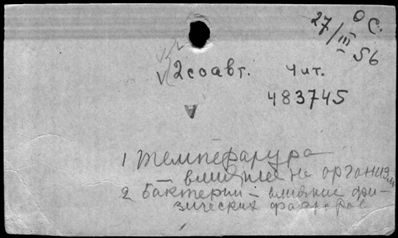 О С.
27/III 56
2 соавт. Чит.
483745
1 температура
- влияние на организм
2 бактерии - влияние фи-
зических факторов